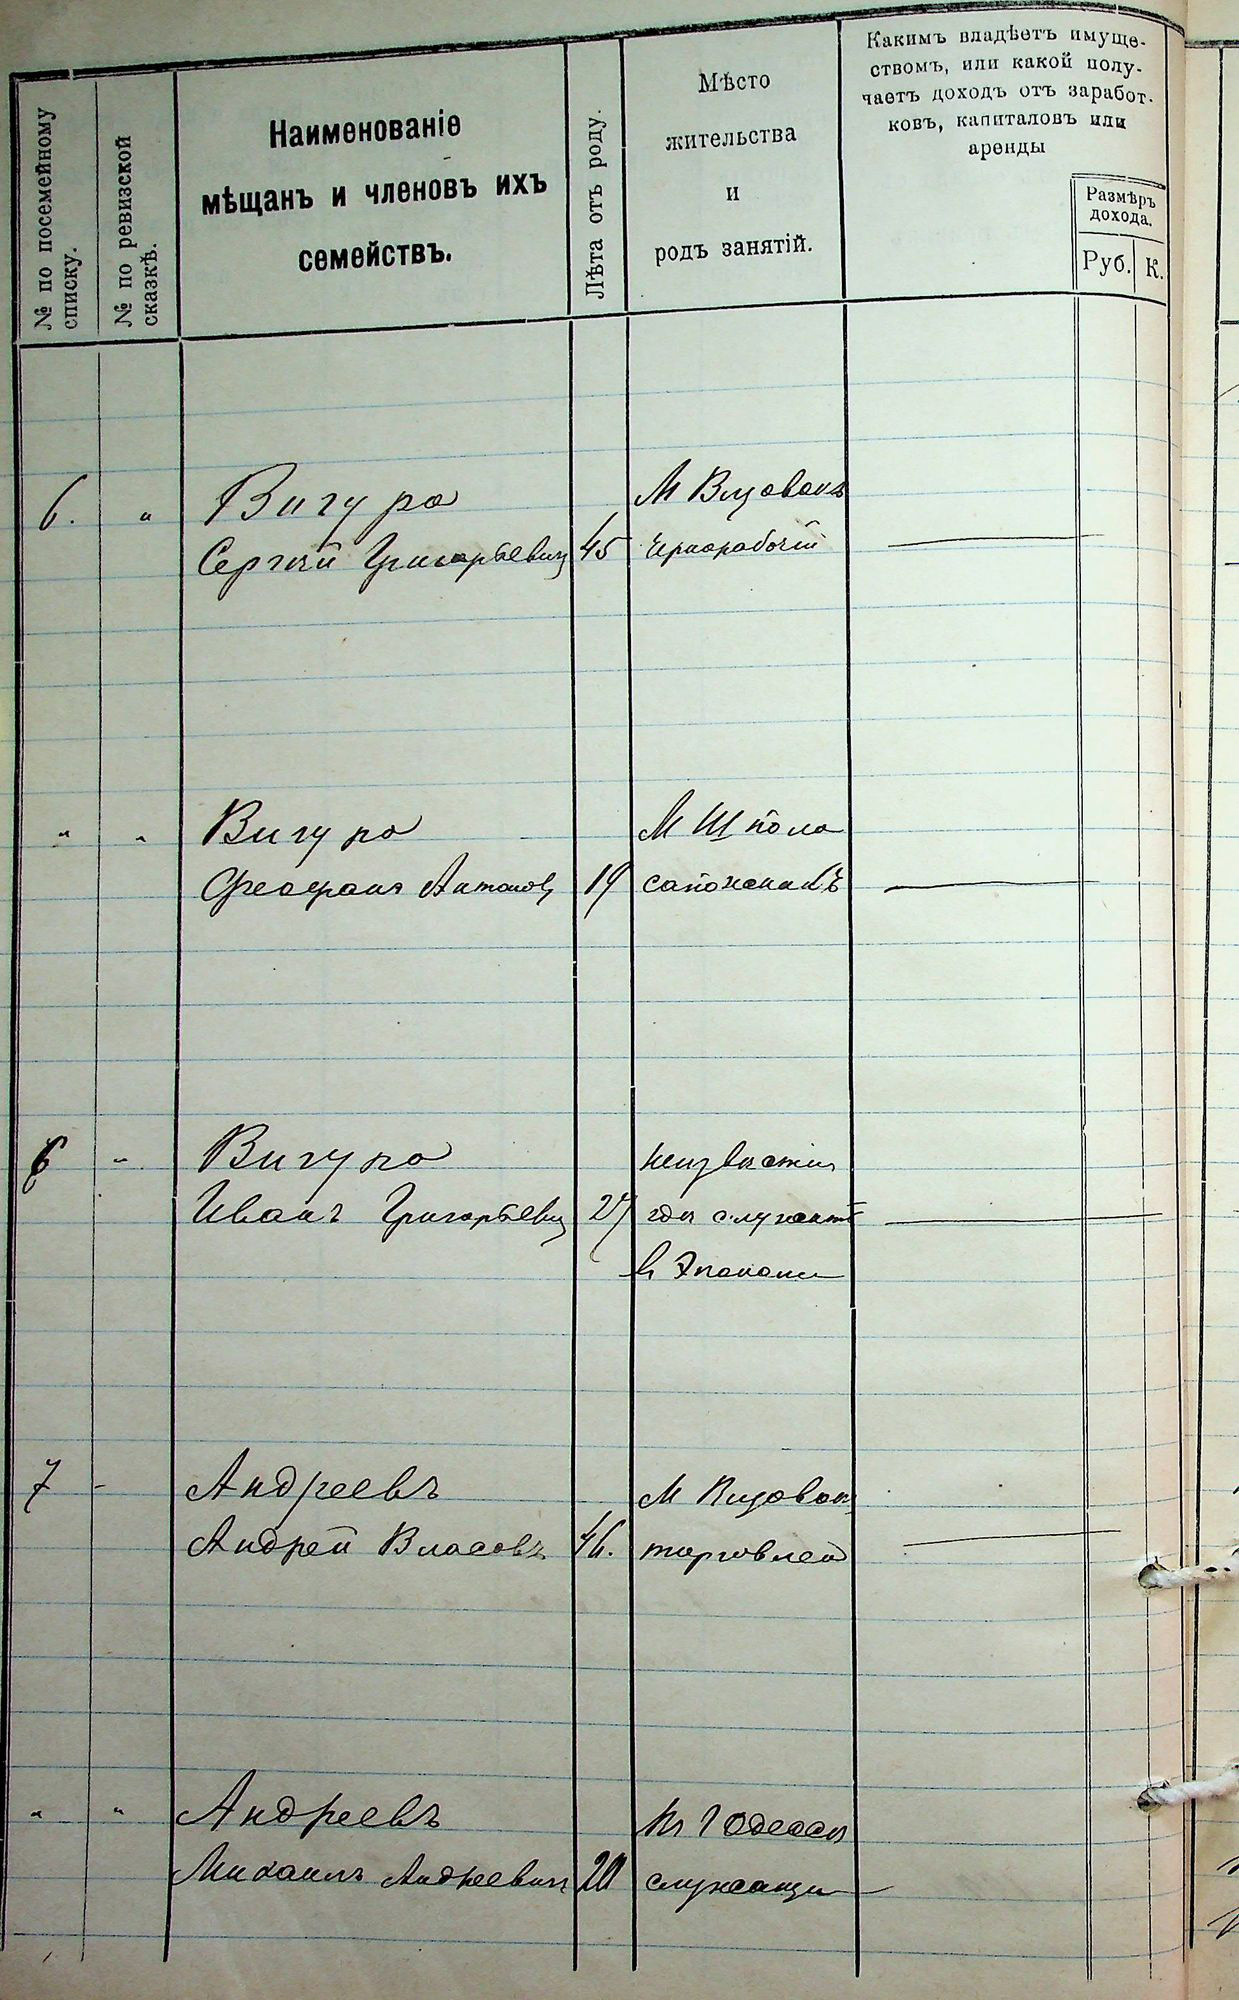 № по посемейному
списку.
№ по ревизской
сказкѣ.
Наименованіе
мѣщанъ и членовъ ихъ
семействъ.
Лѣта отъ роду.
Мѣсто
жительства
и
родъ занятій.
Какимъ владѣетъ имуще-
ствомъ, или какой полу-
чаетъ доходъ отъ заработ-
ковъ, капиталовъ или
аренды
Размѣръ
дохода.
Руб. К.
6. " Вигура М
Сергѣй Григорьевич 45 Чернорабочій
" " Вигура М Шпола
Феофанъ Антонов 19 сапожникъ
6 " Вигура неизвѣстно
Иванъ Григорьевич 27 гдѣ служитъ
в
7 - Андреевъ М
Андрей Власовъ 46. торговлей
" " Андреевъ Одесса
Михаилъ Андреевич 20 служащи